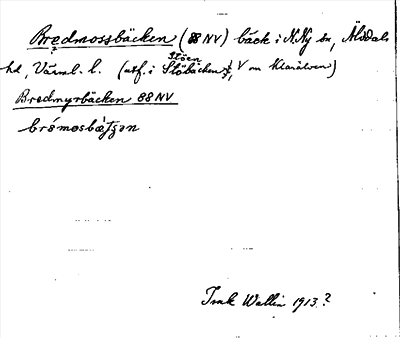 Bredmossbäcken (88 NV) bäck i N.Ny sn, Älvdals
hd, Värml. l. (utf. i Stöbäcken, V om Klarälven)
Stöen
Bredmyrbäcken 88 NV
Wallin 1913?